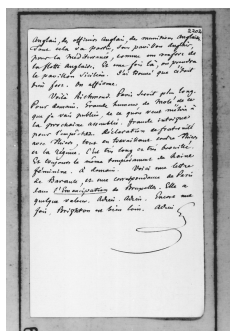 2202
anglais, des officiers anglais, des munitions anglaises.
Tout cela va partir, sous pavillon anglais,
pour la Méditerranée, comme un renfort de
la flotte anglaise. Et une fois là, on prendra
le pavillon sicilien. J'ai trouvé que c'était
bien fort. On affirme.
Voilà Richmond. Paris serait plus long.
Pour demain. Grande humeur de Molé de ce
que je vais publier, de ce que veux entrer à
la prochaine assemblée. Grande intrigue
pour l'empêcher. Déclaration de fraternité
avec Thiers, tout en travaillant contre Thiers
et la Régence. C'est très long et très brouillé.
Et toujours le même tempérament de haine
féminine. A demain. Voici une lettre
de Barante et une correspondance de Paris
dans l'Emancipation de Bruxelles. Elle a
quelque valeur. Adieu. Adieu. Encore une
fois, Brighton est bien loin. Adieu